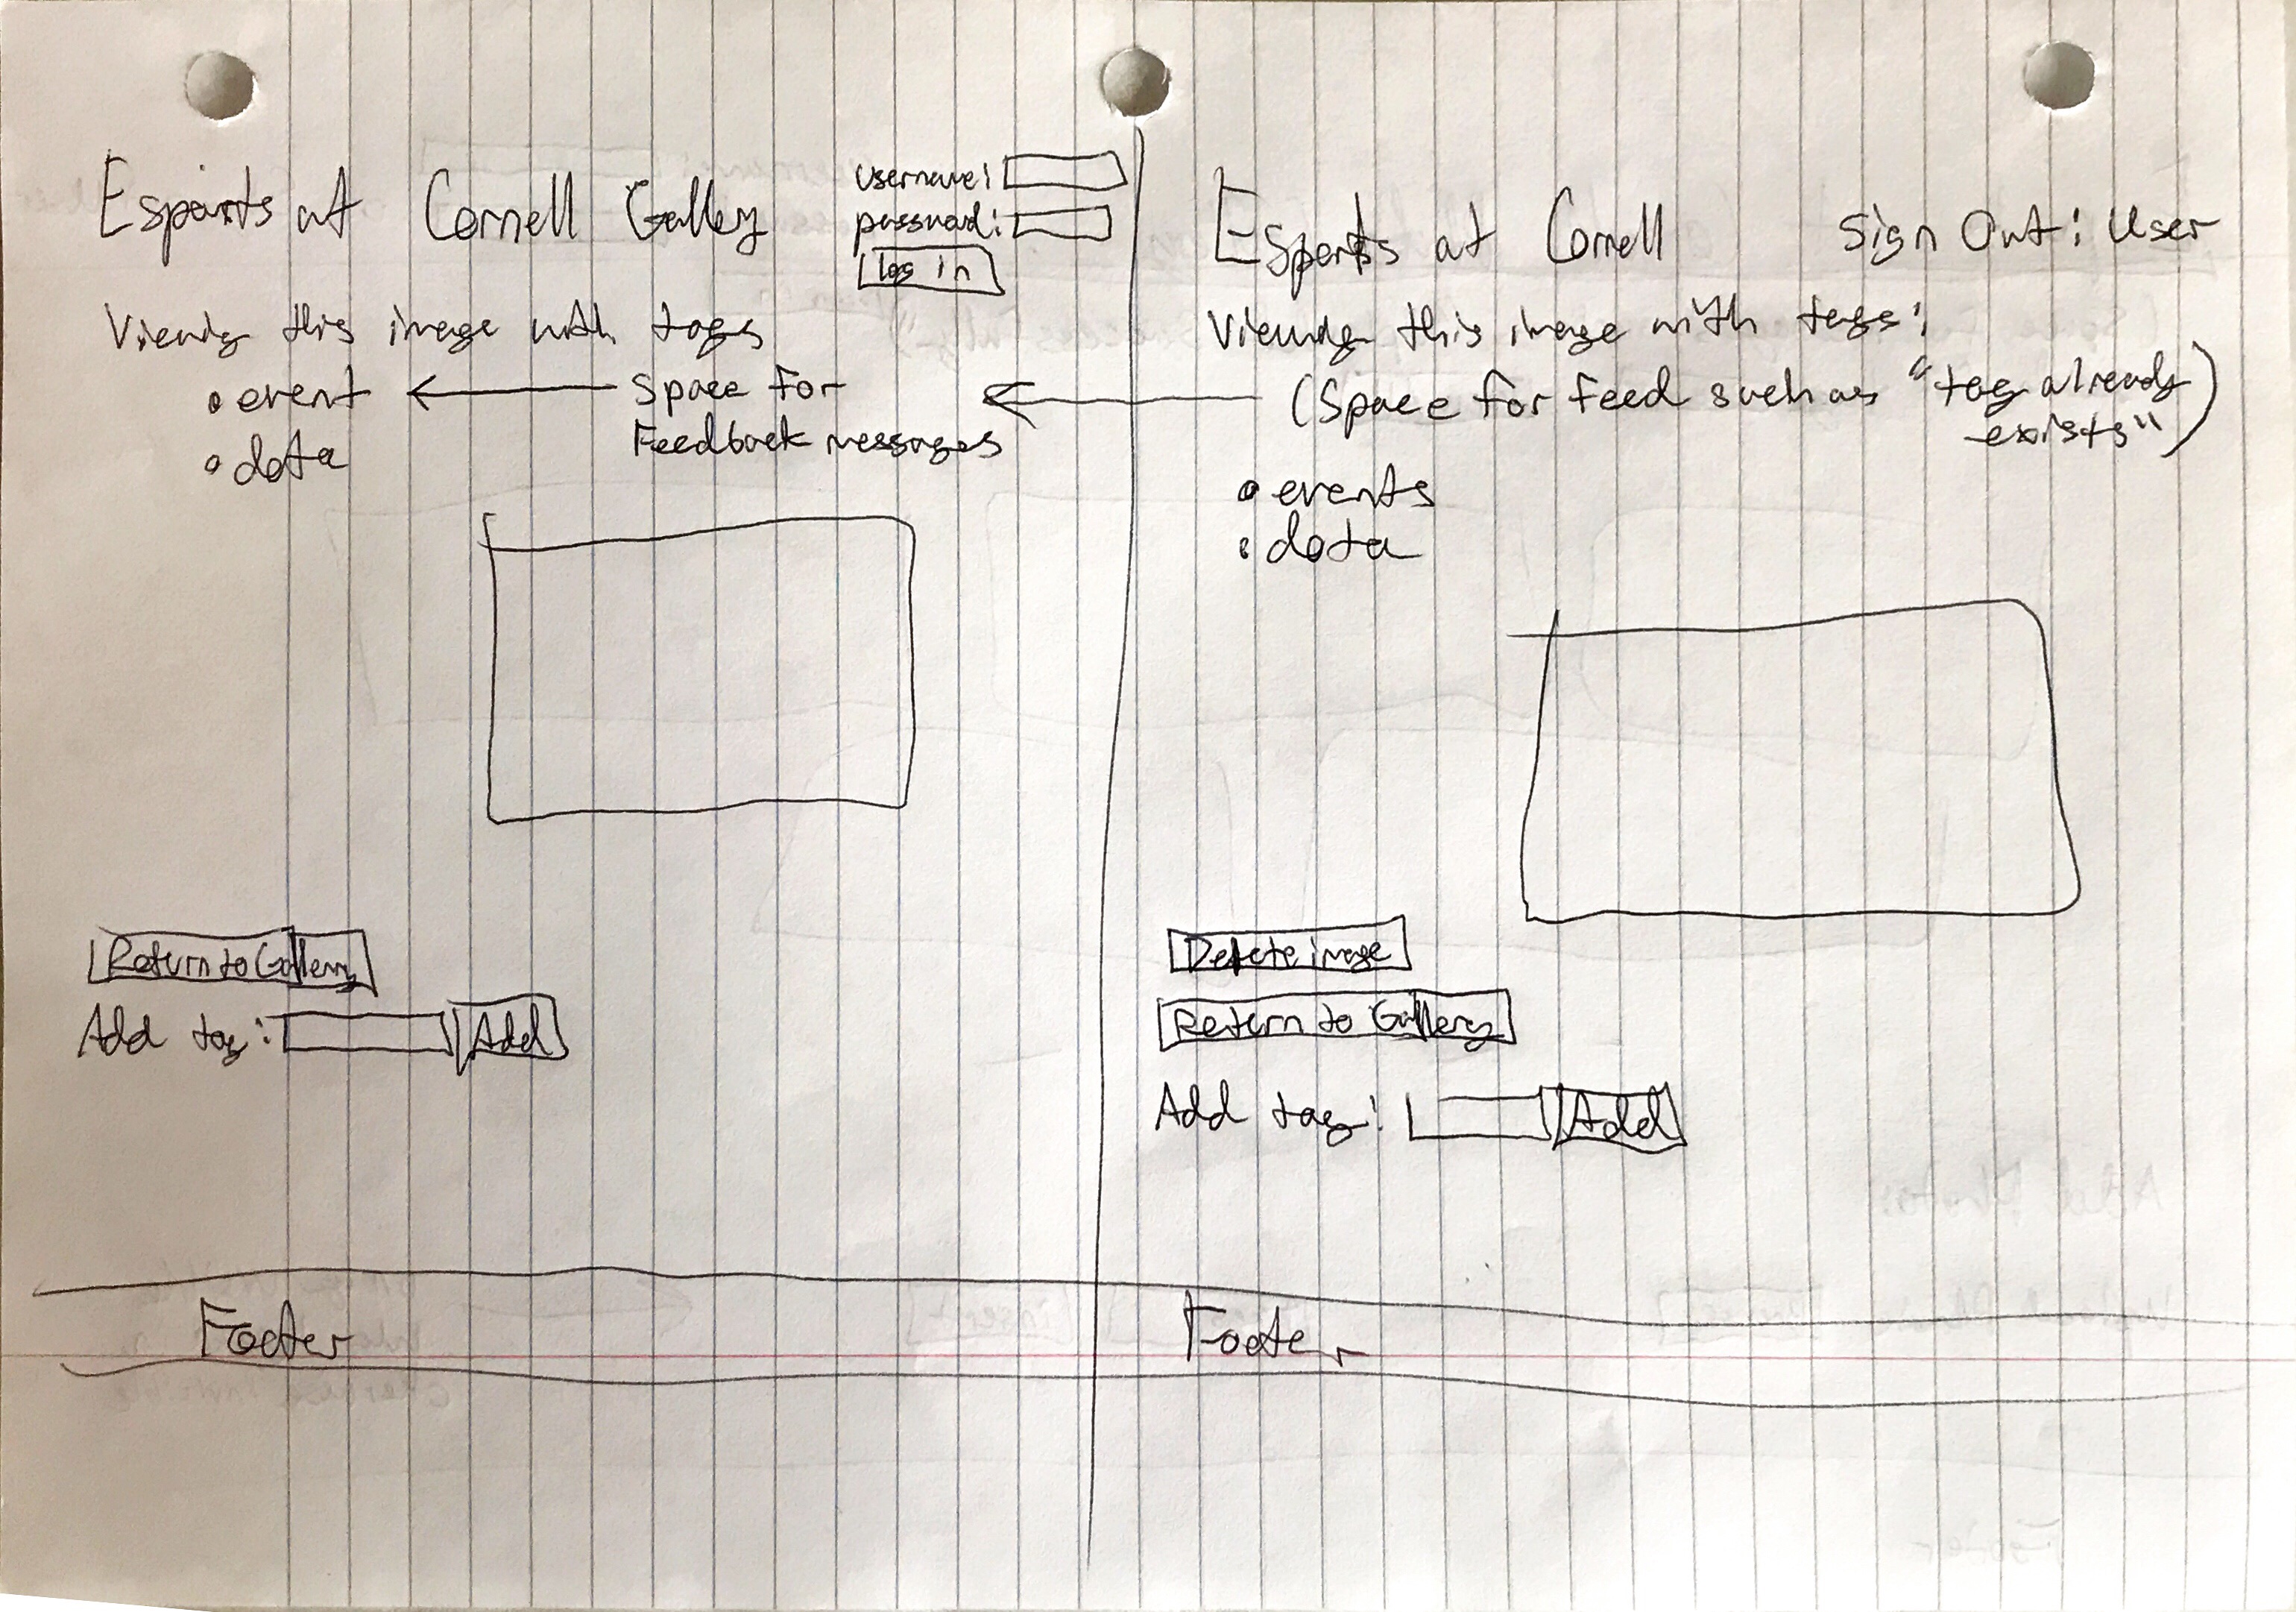 Esports at Cornell Gallery
username:
password:
log in
Viewing this image with tags
• event
• data
Space for
Feedback messages
Return to Gallery
Add tag: Add
Footer
Esports at Cornell
Sign Out: User
Viewing this image with tags:
(Space for feed such as "tag already
exists")
• events
• data
Delete image
Return to Gallery
Add tag: Add
Footer